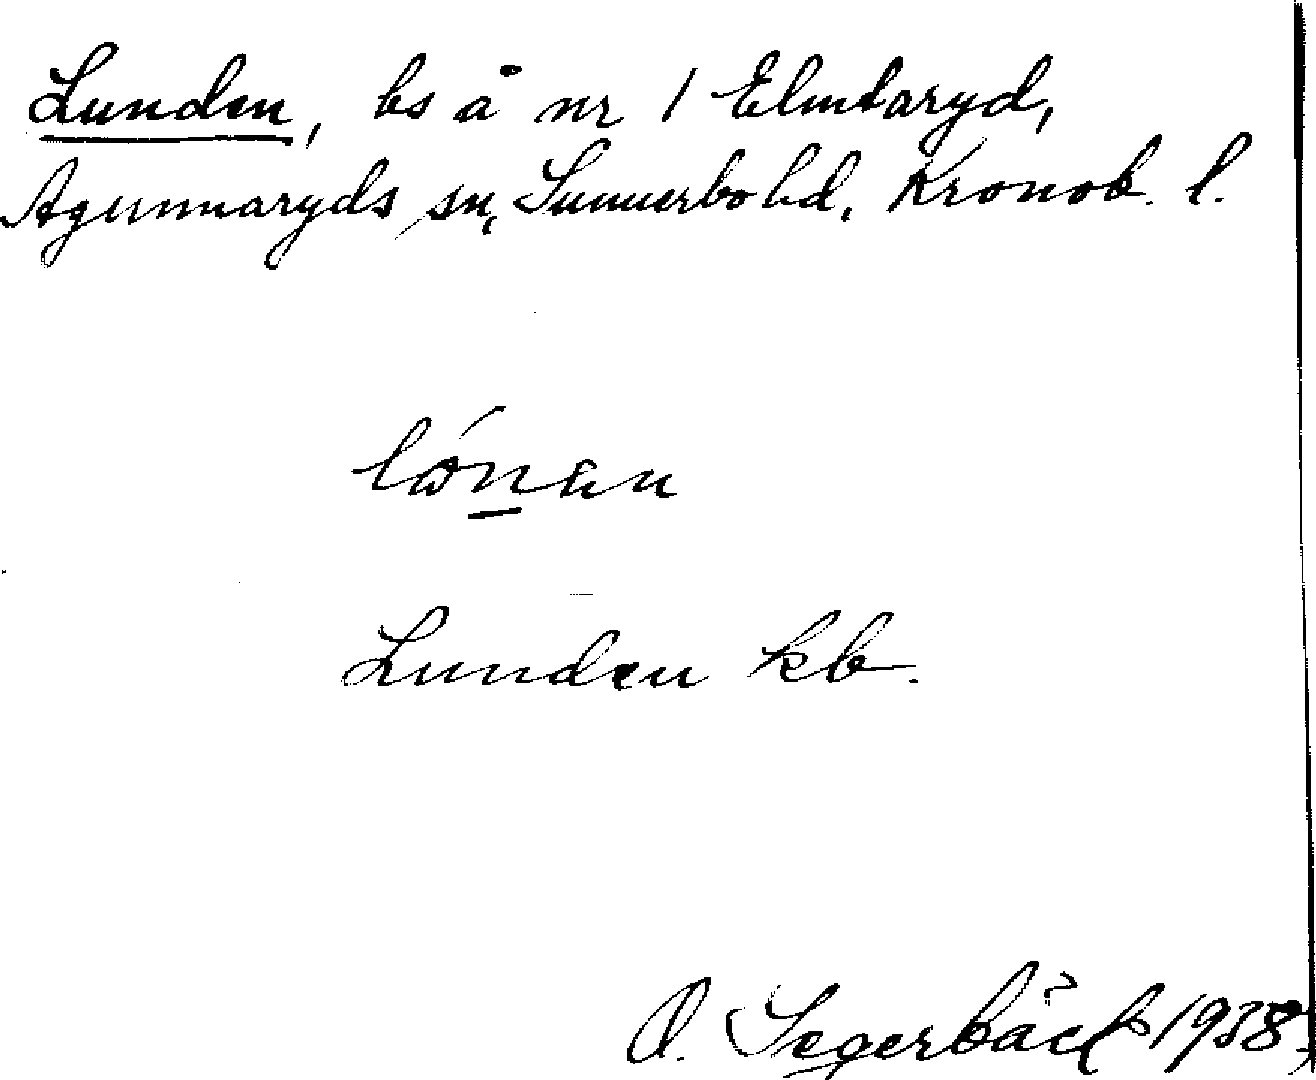 Lunden, bs å nr 1 Elmtaryd,
Agunnaryds sn, Sunnerbo hd, Kronob. l.
Lunden kb.
O. Segerbäck 1938.